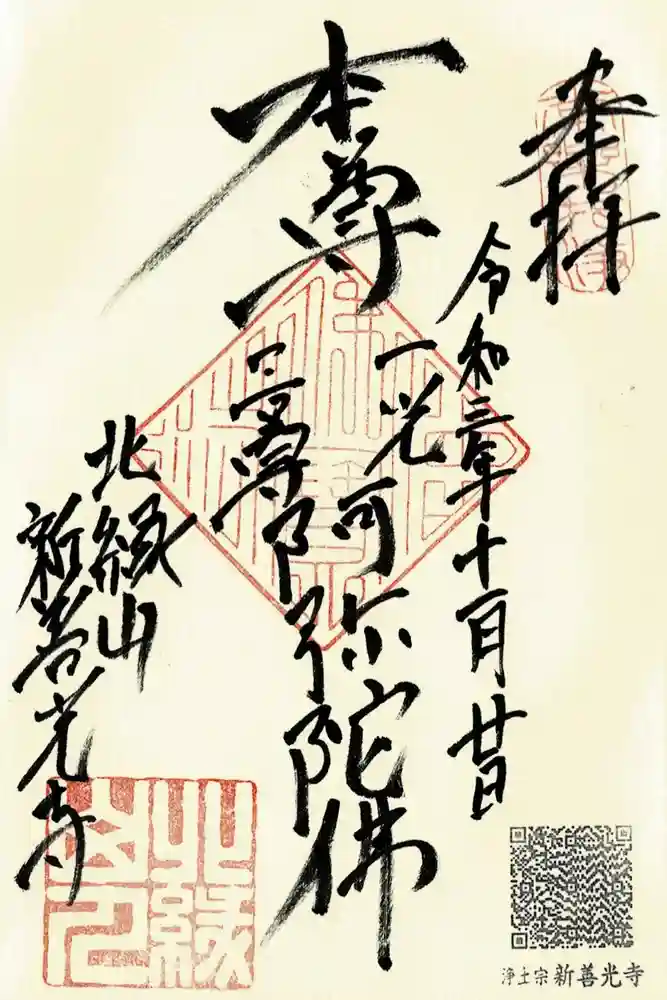 奉拝
令和三年十月廿日
本尊
一光
三尊
阿弥陀佛
北縁山
新善光寺
浄土宗 新善光寺